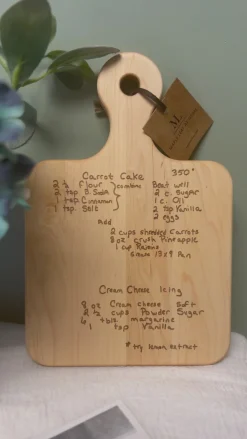 Carrot Cake 350°
2 ½ Flour combine Beat well
2 tsp B. Soda 2 c. Sugar
1 tsp. Cinnamon 1 c. Oil
1 tsp. Salt 2 tsp Vanilla
2 eggs
Add
2 cups shredded Carrots
8 oz crush Pineapple
1 cup Raisins
13x9 Pan
Cream Cheese Icing
8 oz Cream cheese soft
2 ½ cups Powder Sugar
6 tbls. margarine
1 tsp Vanilla
* try lemon extract
M